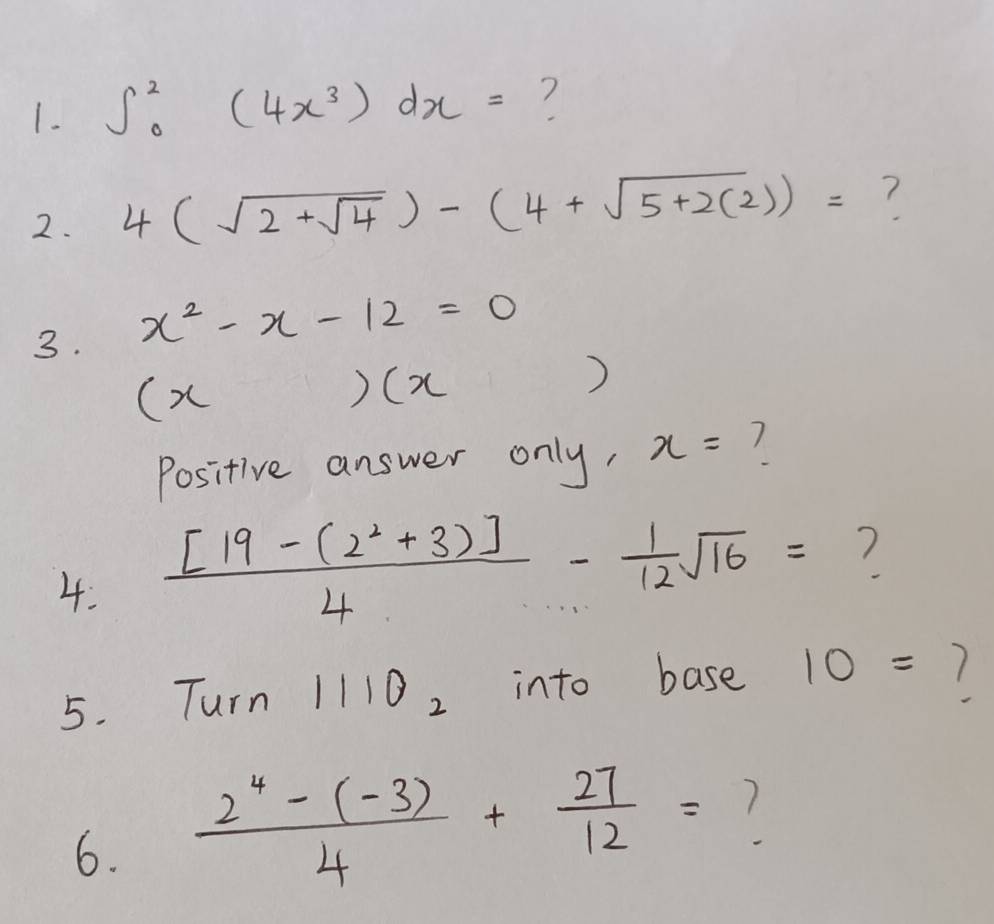 1. ∫₀² (4x³) dx = ?
2. 4(√(2+√4)) - (4 + √(5+2(2))) = ?
3. x² - x - 12 = 0
(x )(x )
Positive answer only, x = ?
4. [19 - (2² + 3)]/4 - 1/12 √16 = ?
5. Turn 1110₂ into base 10 = ?
6. (2⁴ - (-3))/4 + 27/12 = ?